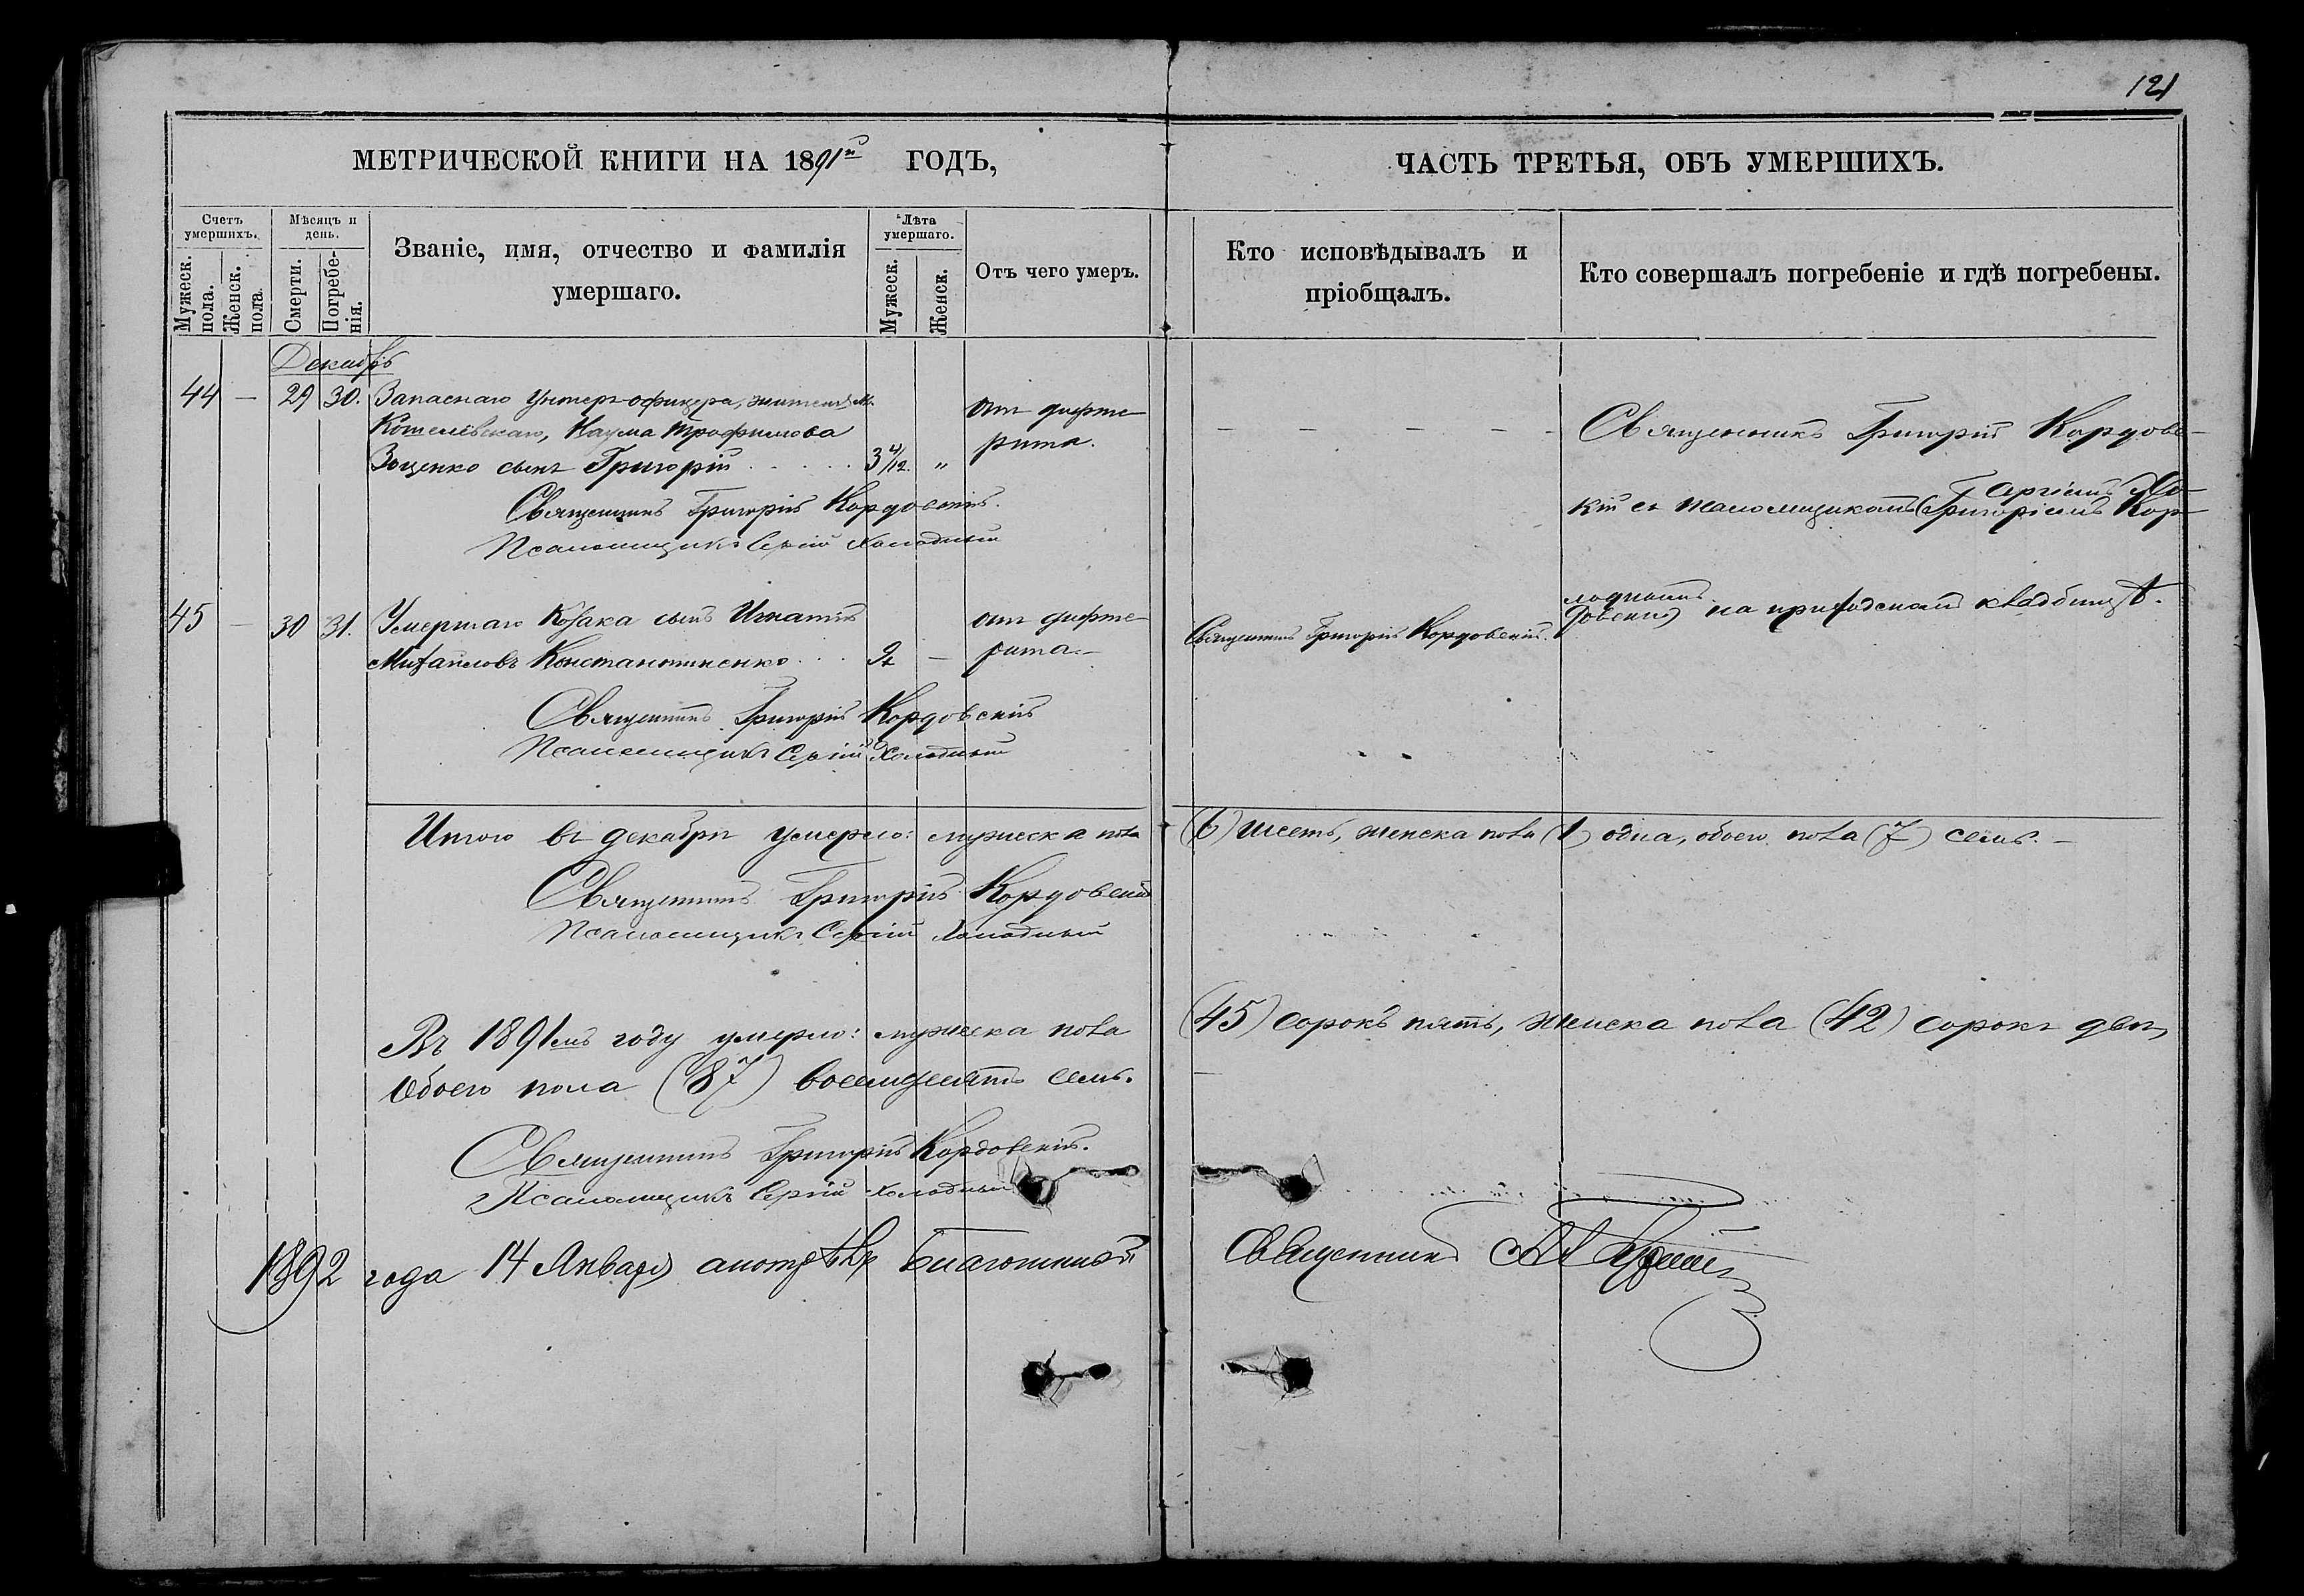 121
МЕТРИЧЕСКОЙ КНИГИ НА 1891й ГОДЪ,
ЧАСТЬ ТРЕТЬЯ, ОБЪ УМЕРШИХЪ.
Счетъ умершихъ.
Мужеск. пола.
Женск. пола.
Мѣсяцъ и день.
Смерти.
Погребенія.
Званіе, имя, отчество и фамилія
умершаго.
Лѣта умершаго.
Мужеск.
Женск.
Отъ чего умеръ.
Кто исповѣдывалъ и
пріобщалъ.
Кто совершалъ погребеніе и гдѣ погребены.
Декабрь
44 — 29 30. Запаснаго Унтеръ-офицера, жителя м.
Котелевскаго, Наума Трофимова
Зощенко сынъ Григорій . . . . . 3 4/12. "
отъ дифте-
рита.
Священникъ Григорій Кордовскій.
Псаломщикъ Сергій Холодный
Священникъ Григорій Кордовс-
кій съ псаломщикомъ (Григоріемъ Кор-
довскимъ) Сергіемъ Хо-
лоднымъ на приходскомъ кладбищѣ.
45 — 30 31. Умершаго Козака сынъ Игнатій
Михайловъ Константиненко . . . 2 —
отъ дифте-
рита. —
Священникъ Григорій Кордовскій.
Священникъ Григорій Кордовскій
Псаломщикъ Сергій Холодный
Итого въ декабрѣ умерло: мужеска пола (6) шесть, женска пола (1) одна, обоего пола (7) семь. —
Священникъ Григорій Кордовскій
Псаломщикъ Сергій Холодный
Въ 1891мъ году умерло: мужеска пола (45) сорокъ пять, женска пола (42) сорокъ двѣ,
Обоего пола (87) восемдесятъ семь.
Священникъ Григорій Кордовскій.
Псаломщикъ Сергій Холодный
1892 года 14 Января смотрѣлъ Благочинный Священникъ